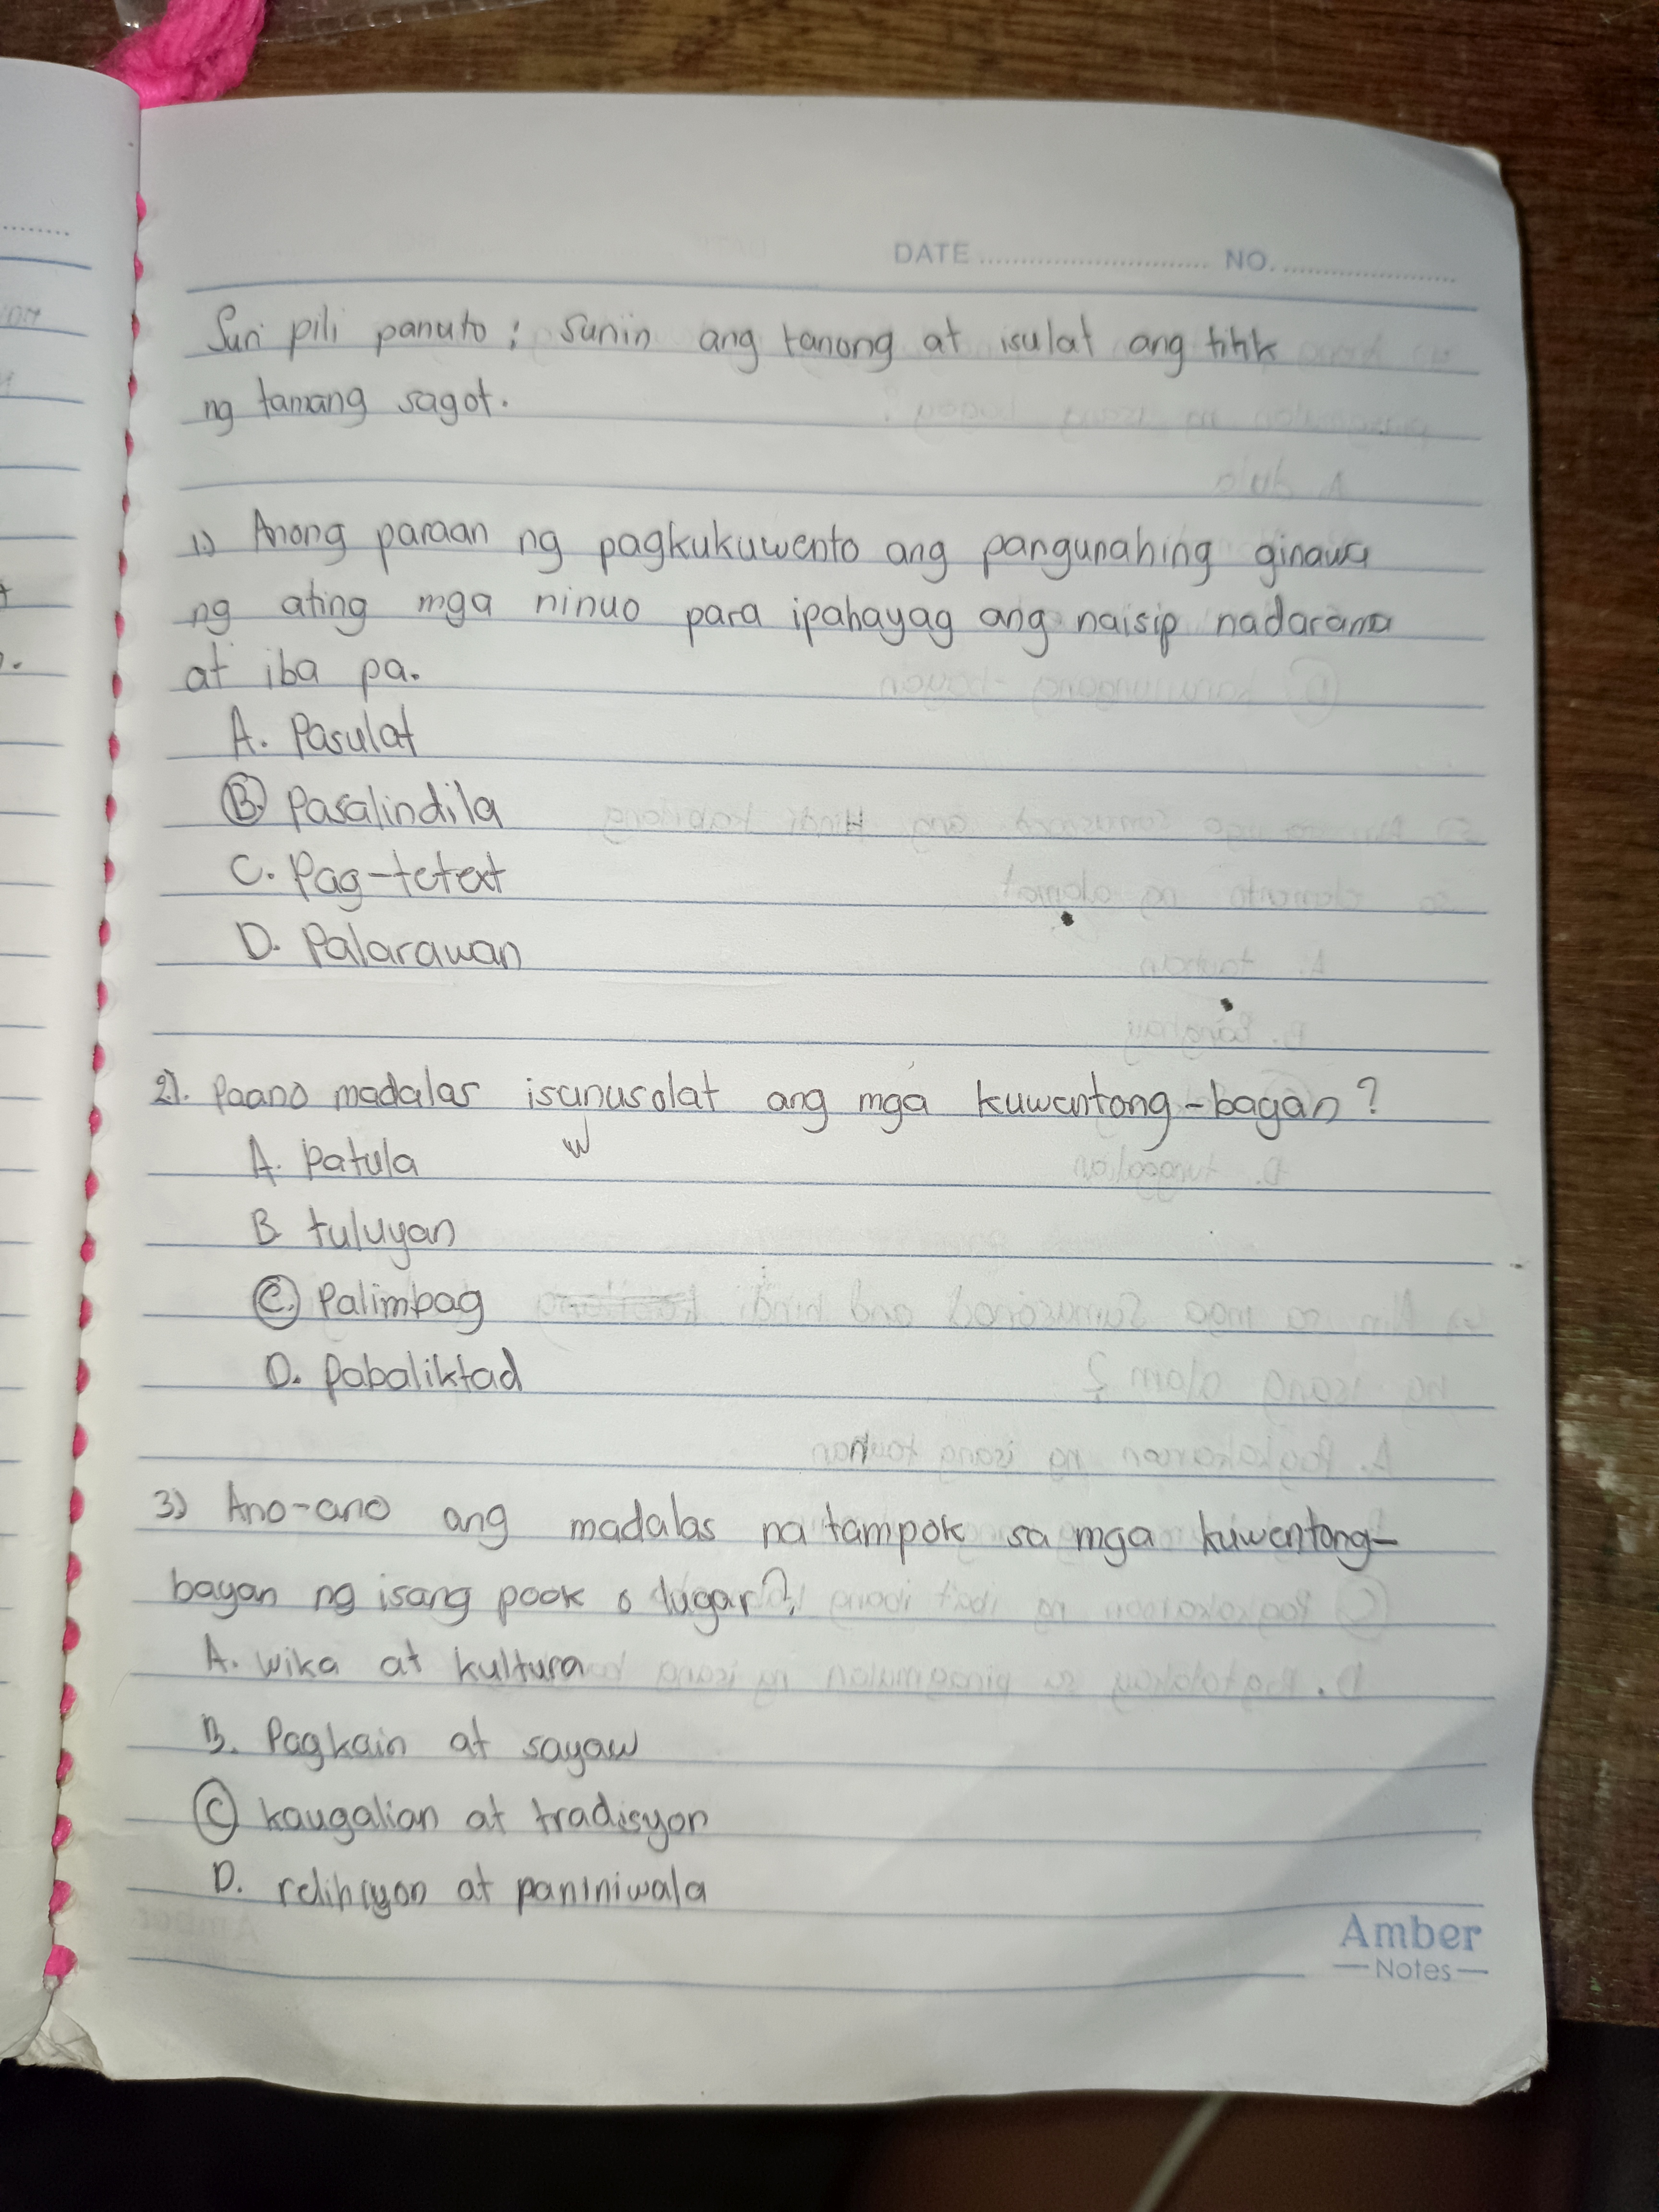 DATE ........................ NO. ........................
Suri pili panuto : Suriin ang tanong at isulat ang titik
ng tamang sagot.
1.) Anong paraan ng pagkukuwento ang pangunahing ginawa
ng ating mga ninuo para ipahayag ang naisip nadarama
at iba pa.
A. Pasulat
B. Pasalindila
C. Pag-tetext
D. Palarawan
2). Paano madalas ang mga kuwentong-bagan ?
A. patula
B tuluyan
C. Palimbag
D. Pabaliktad
3) Ano-ano ang madalas na tampok sa mga kuwentong-
bayan ng isang pook o lugar?
A. wika at kultura
B. Pagkain at sayaw
C kaugalian at tradisyon
D. relihiyon at paniniwala
Amber
Notes